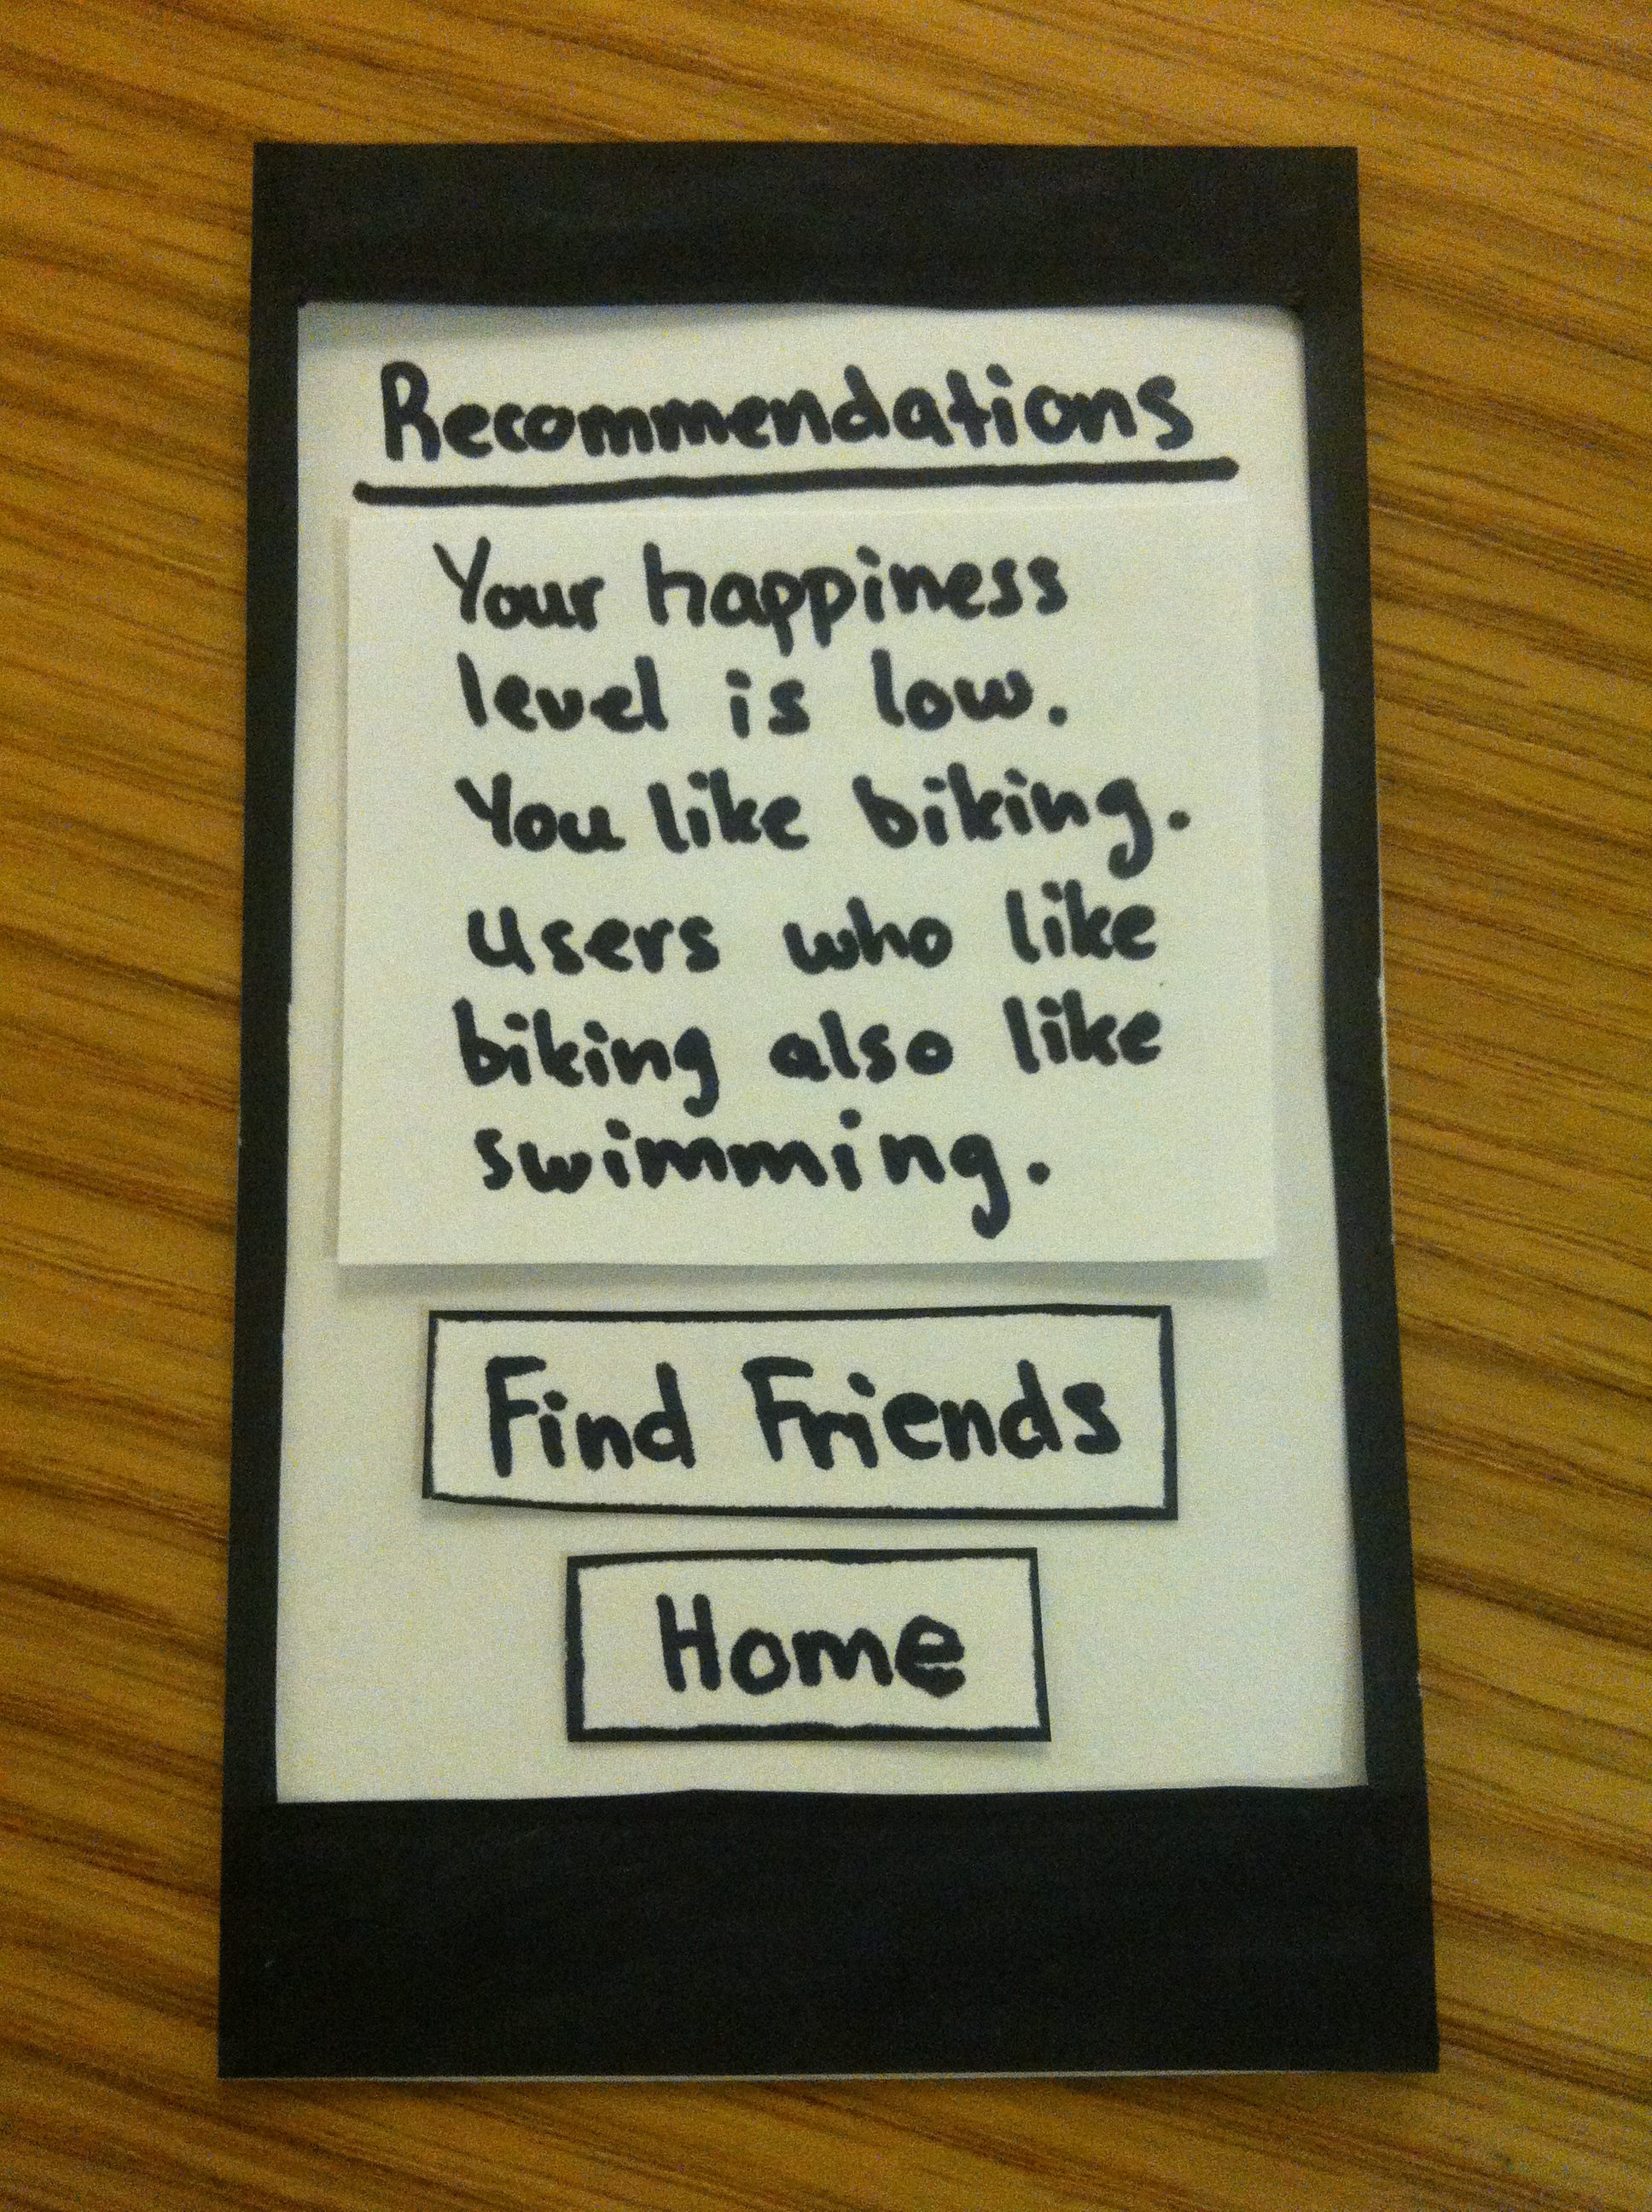 Recommendations
Your happiness
level is low.
You like biking.
Users who like
biking also like
swimming.
Find Friends
Home